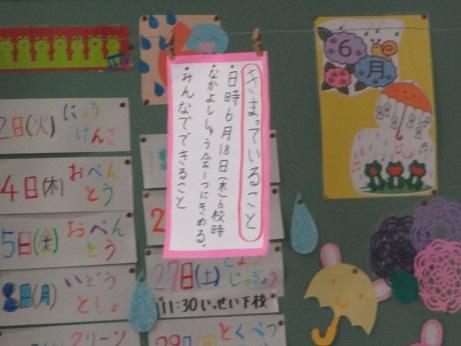 きまっていること
・日時6月18日(木)6校時
・なかよししゅう会一つにきめる。
・みんなでできること
6月
2日(火) にょう
けんさ
4日(木) おべん
とう
5日(金) おべん
とう
8日(月) いどう
としょ
クリーン
27日(土)
じゅぎょう
11:30いっせい下校
とくべつ